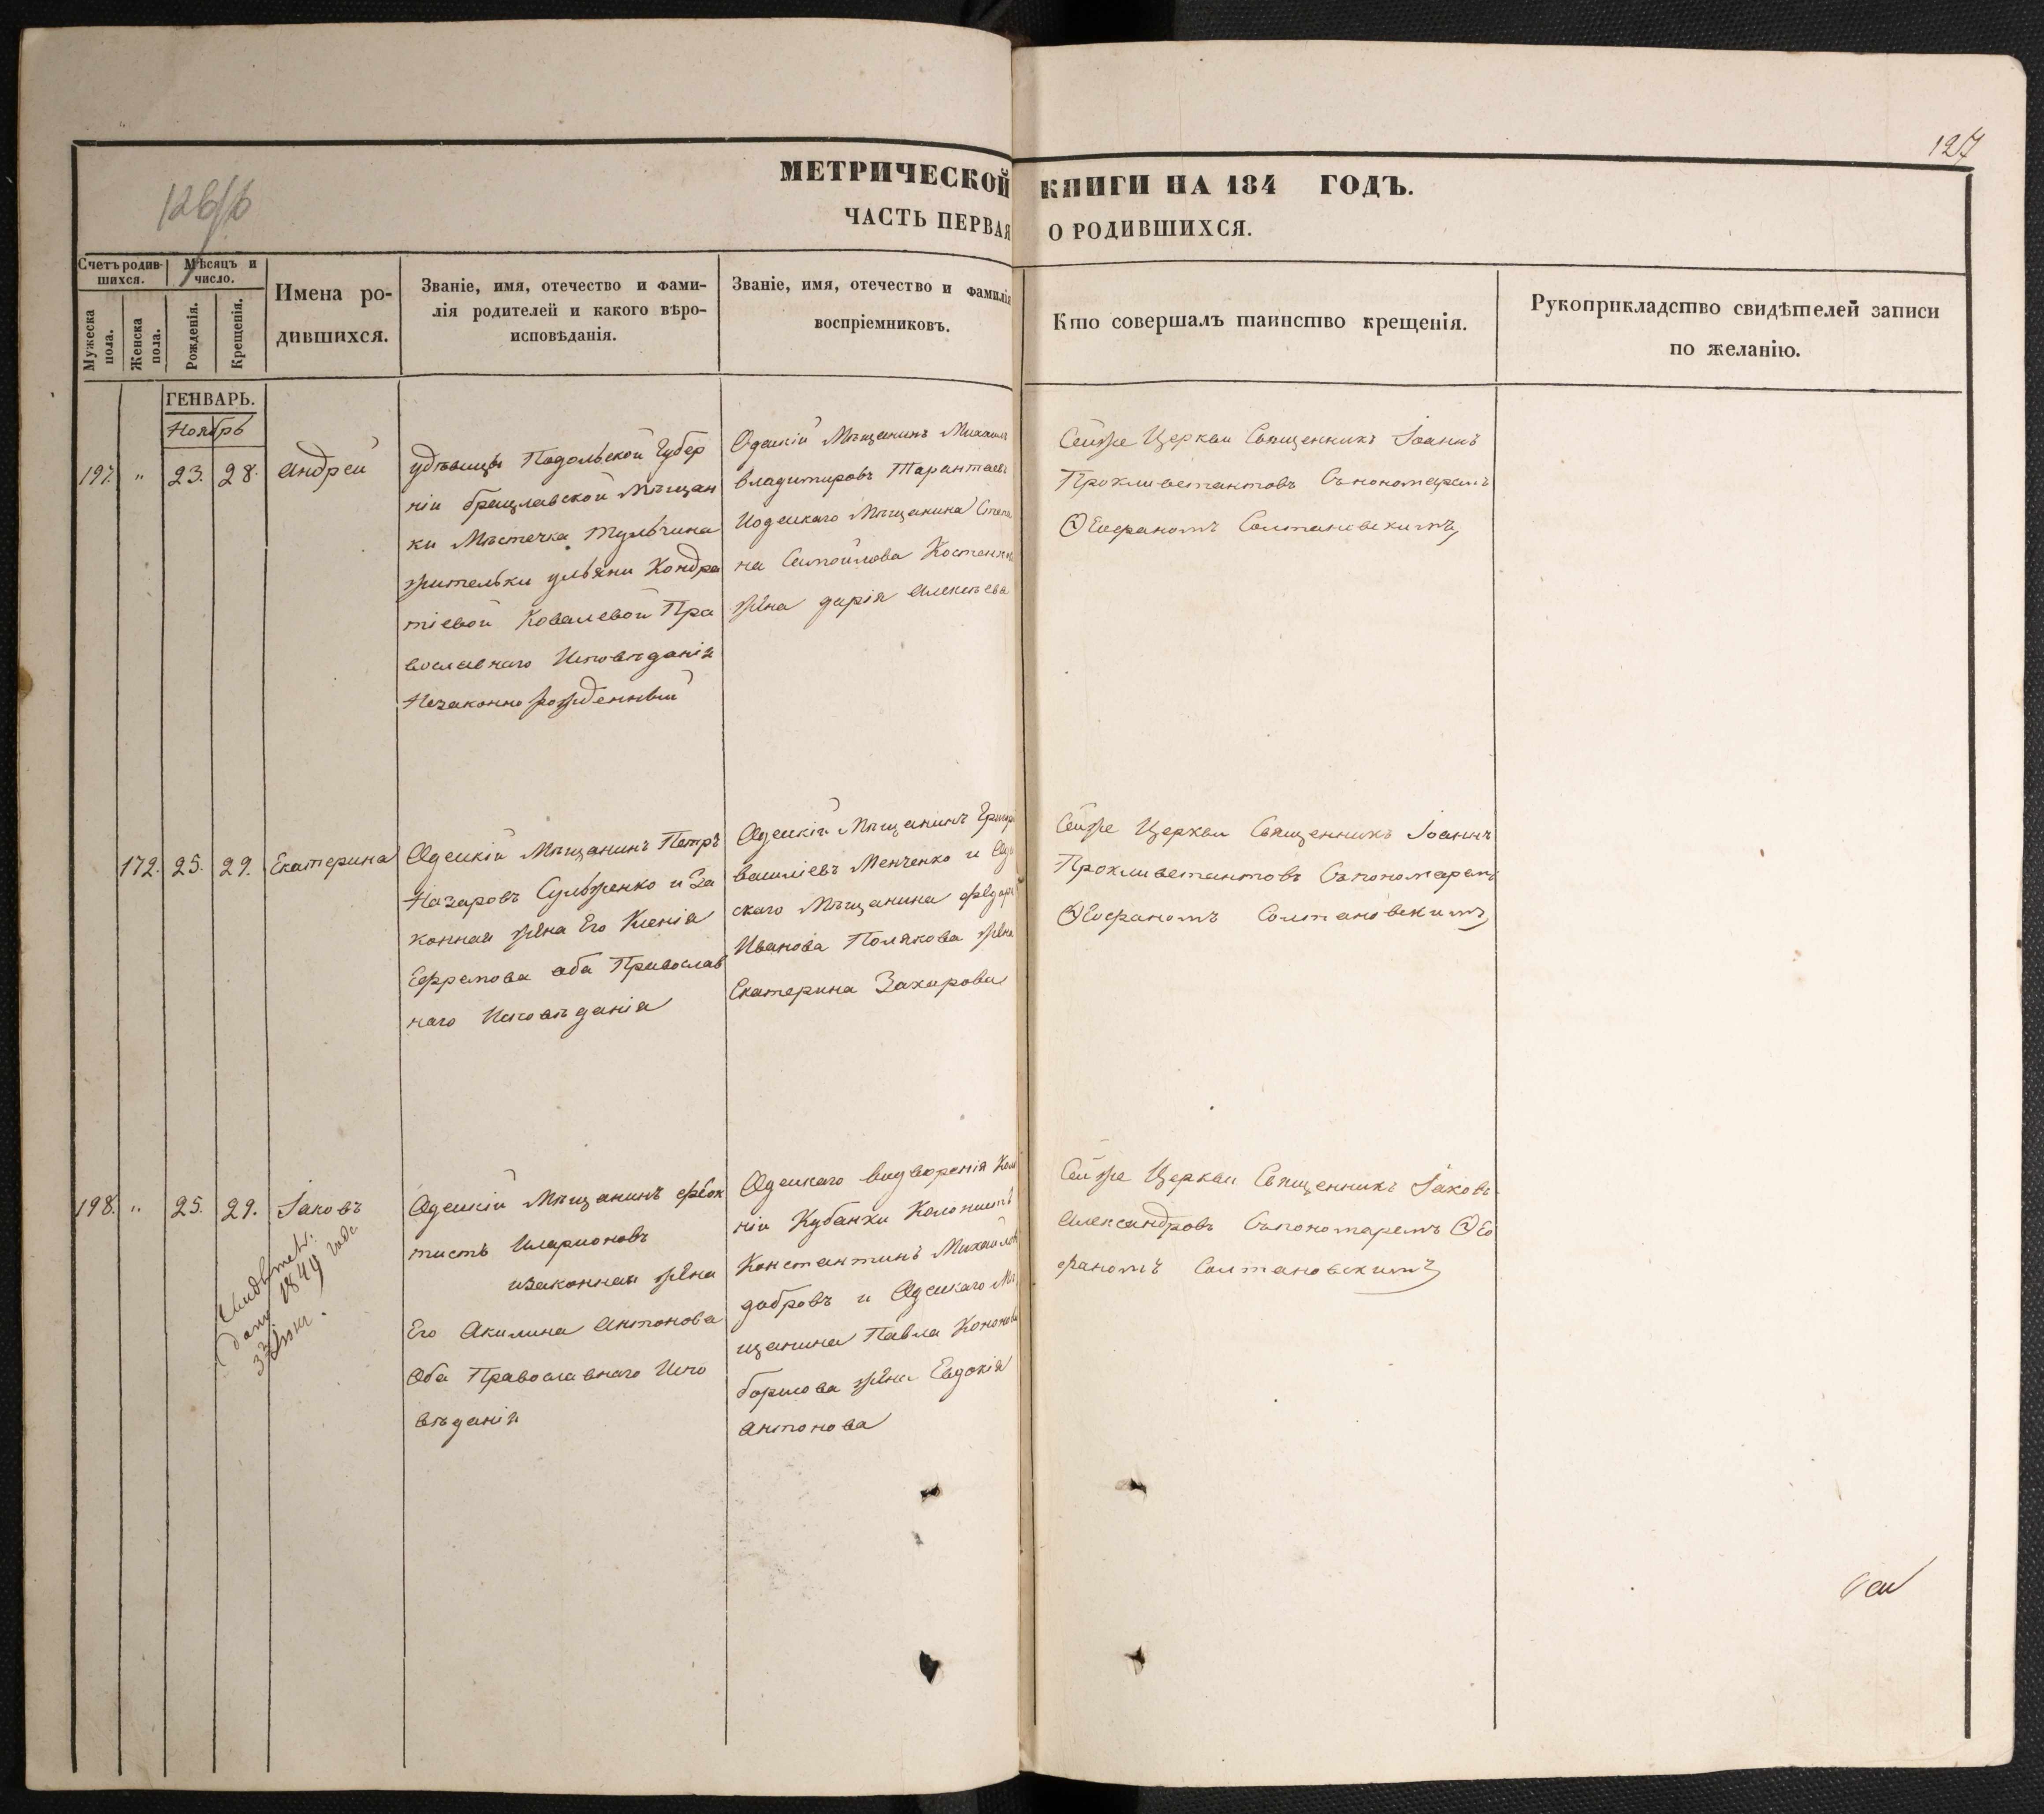 127
126/б
МЕТРИЧЕСКОЙ КНИГИ НА 184 ГОДЪ.
ЧАСТЬ ПЕРВАЯ О РОДИВШИХСЯ.
Счетъ родившихся.
Мужеска пола.
Женска пола.
Мѣсяцъ и число.
Рожденія.
Крещенія.
Имена родившихся.
Званіе, имя, отечество и фамилія родителей и какого вѣроисповѣданія.
Званіе, имя, отечество и фамилія воспріемниковъ.
Кто совершалъ таинство крещенія.
Рукоприкладство свидѣтелей записи по желанію.
ГЕНВАРЬ.
Ноябрь
197. " 23. 28. Андрей
Подольской Губер
ніи Брацлавской Мѣщан
ки Мѣстечка Тульчина
жительки Ульяни Кондра
тіевой Ковалевой Пра
вославнаго Исповѣданія
Незаконно рожденный
Одескій Мѣщанинъ Михаилъ
Владимировъ Тарантаевъ
Иодескаго Мѣщанина Степа
на Самойлова Костенка
жѣна Дарія Алексѣева
Сейже Церкви Священникъ Іоаннъ
Прокливетантовъ Съпономаремъ
Ѳеофаномъ Солтановскимъ
172. 25. 29. Екатерина
Одескій Мѣщанинъ Петръ
Назаровъ Сульженко и За
конная жѣна Его Ксенія
Ефремова оба Православ
наго Исповѣданія
Одескій Мѣщанинъ Григорі
Василіевъ Менченко и Оде
скаго Мѣщанина Федора
Иванова Полякова жѣна
Екатерина Захарова
Сейже Церкви Священникъ Іоаннъ
Прокливетантовъ Съпономаремъ
Ѳеофаномъ Солтановскимъ
198. " 25. 29. Іаковъ
дано 1849 года
Одескій Мѣщанинъ Феок
тистъ Иларионовъ
изаконная жѣна
Его Акилина Антонова
Оба Православнаго Испо
вѣданія
Одескаго Видворенія Коло
ніи Кубанки Колонистъ
Константинъ Михайлов
Добровъ и Одескаго Мѣ
щанина Павла Кононова
жѣна Евдокія
Антонова
Сейже Церкви Священникъ Іаковъ
Александровъ Съпономаремъ Ѳео
фаномъ Солтановскимъ